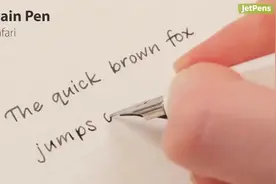 ain Pen
afari
JetPens
The quick brown fox
jumps